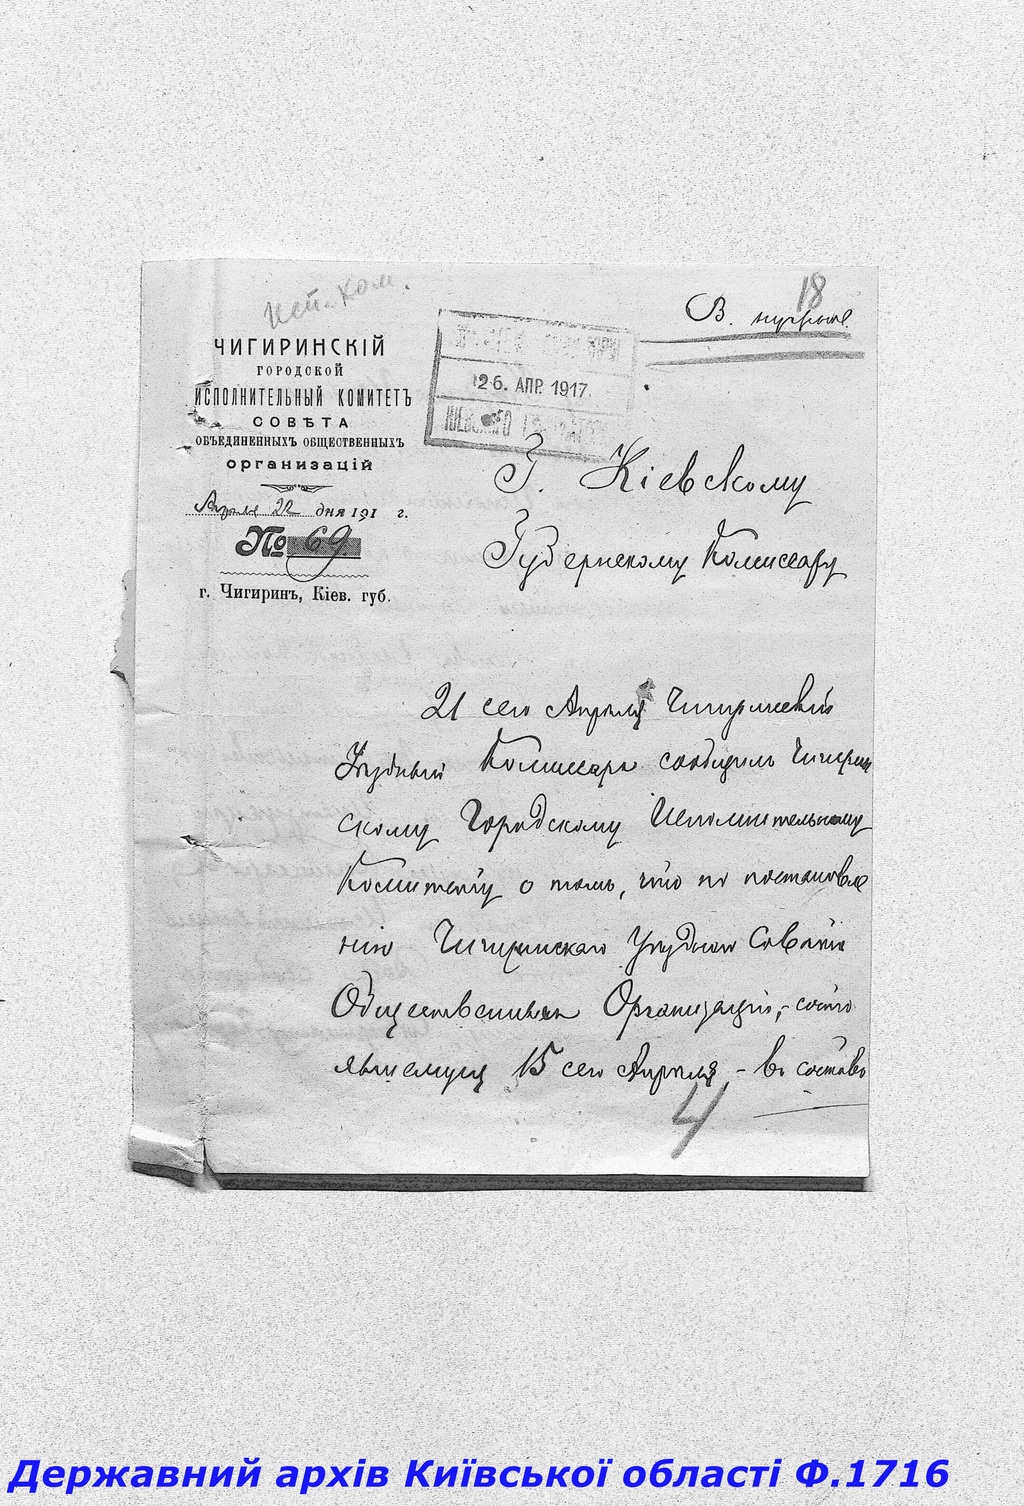 исп. ком.
18
В. 
ЧИГИРИНСКІЙ
ГОРОДСКОЙ
ИСПОЛНИТЕЛЬНЫЙ КОМИТЕТЪ
СОВѢТА
ОБЪЕДИНЕННЫХЪ ОБЩЕСТВЕННЫХЪ
ОРГАНИЗАЦІЙ
Апрѣля 22 дня 191 г.
№ 69.
г. Чигиринъ, Кіев. губ.
26. АПР. 1917.
КІЕВСКАГО
Г. Кіевскому
Губернскому Комиссару
21 сего Апрѣля Чигиринскій
Уѣздный Комиссаръ сообщилъ Чигирин
скому Городскому Исполнительному
Комитету о томъ, что по постановле
нію Чигиринскаго Уѣзднаго Совѣта
Общественныхъ Организацій, состо
явшемуся 15 сего Апрѣля - въ составъ
4
Державний архів Київської області Ф.1716